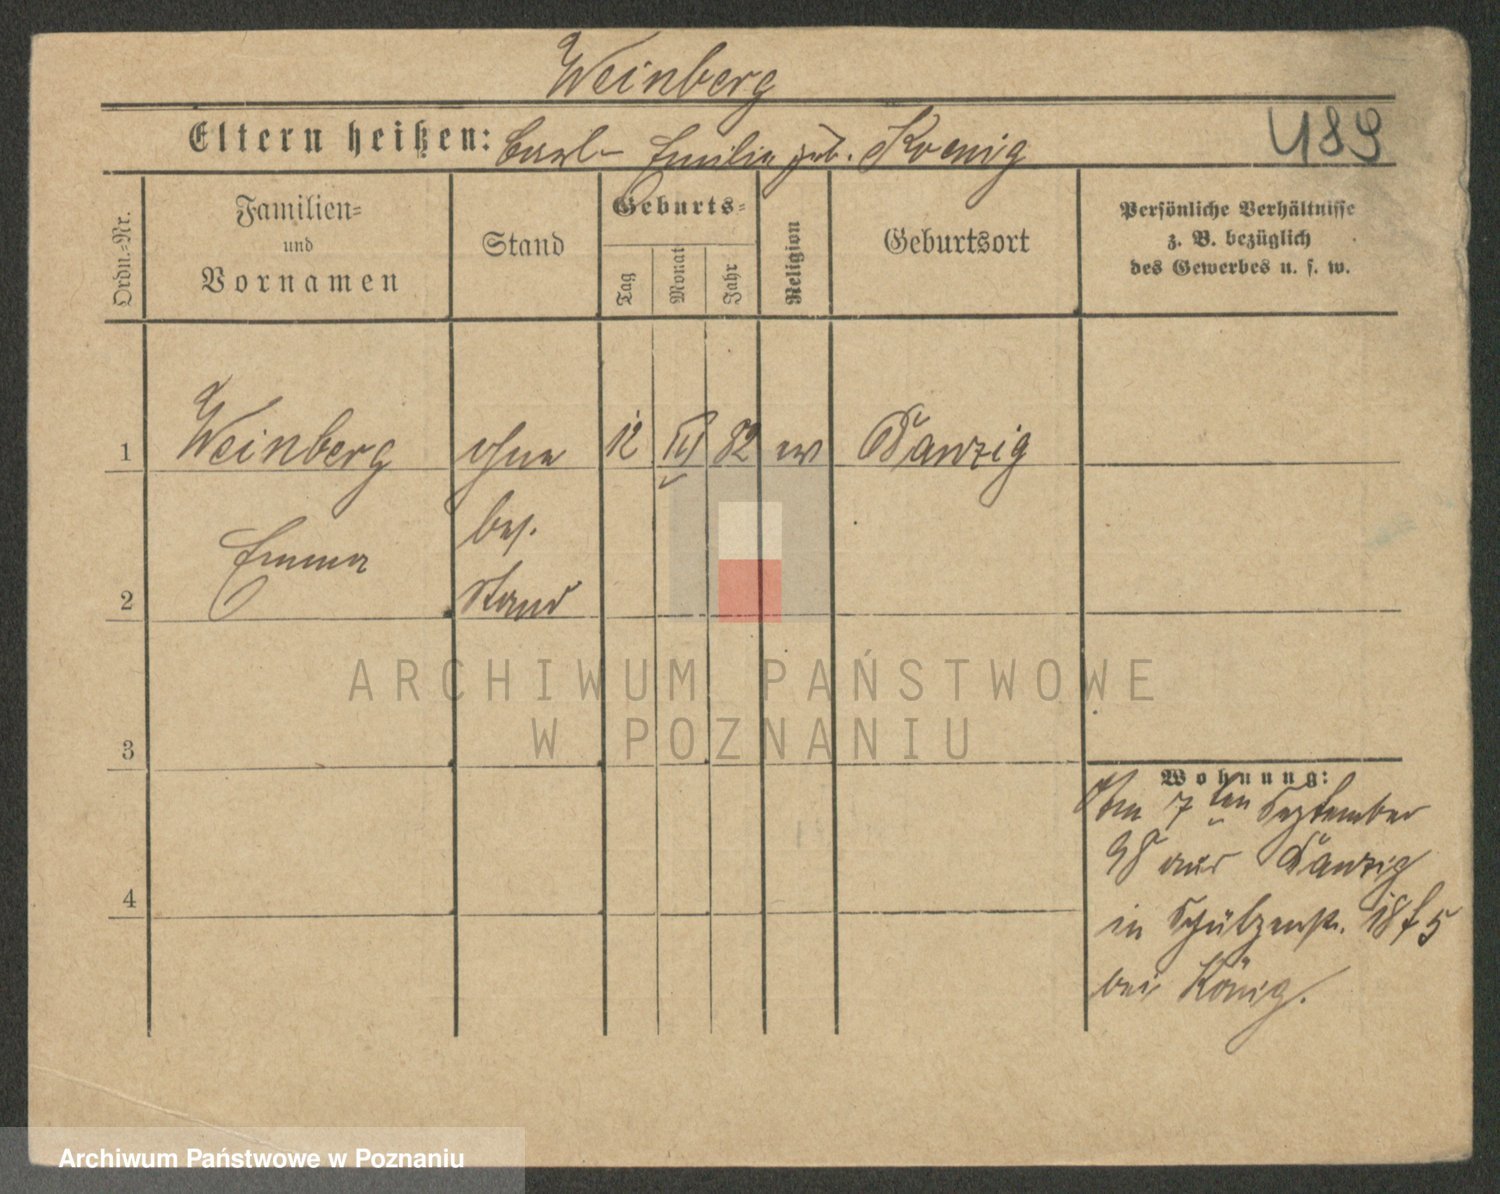 Weinberg
Eltern heißen: Carl Emilie geb. Koenig
489
Ordn.=Nr.
Familien=
und
Vornamen
Stand
Geburts=
Tag
Monat
Jahr
Religion
Geburtsort
Persönliche Verhältnisse
z. B. bezüglich
des Gewerbes u. s. w.
1 Weinberg ohne 12 82 ev Danzig
bes.
Emma
2 Stand
ARCHIWUM PAŃSTWOWE
W POZNANIU
3
Wohnung:
Am 7ten September
98 aus Danzig
in Schützenstr. 18 f 5
4
bei König.
Archiwum Państwowe w Poznaniu